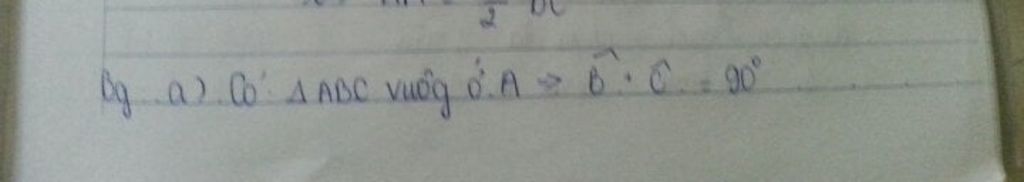 2
Bg a) Có ΔABC vuôg ở A ⇒ B̂ + Ĉ = 90°